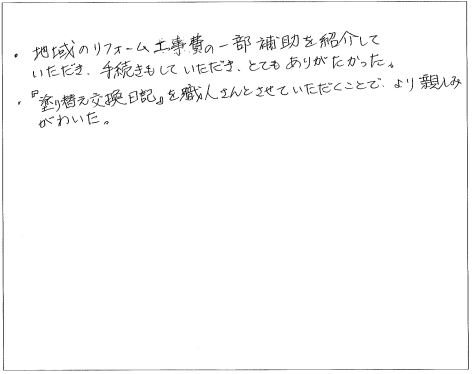 ・地域のリフォーム工事費の一部補助を紹介して
いただき、手続きもしていただき、とてもありがたかった。
・『塗り替え交換日記』を職人さんとさせていただくことで、より親しみ
がわいた。